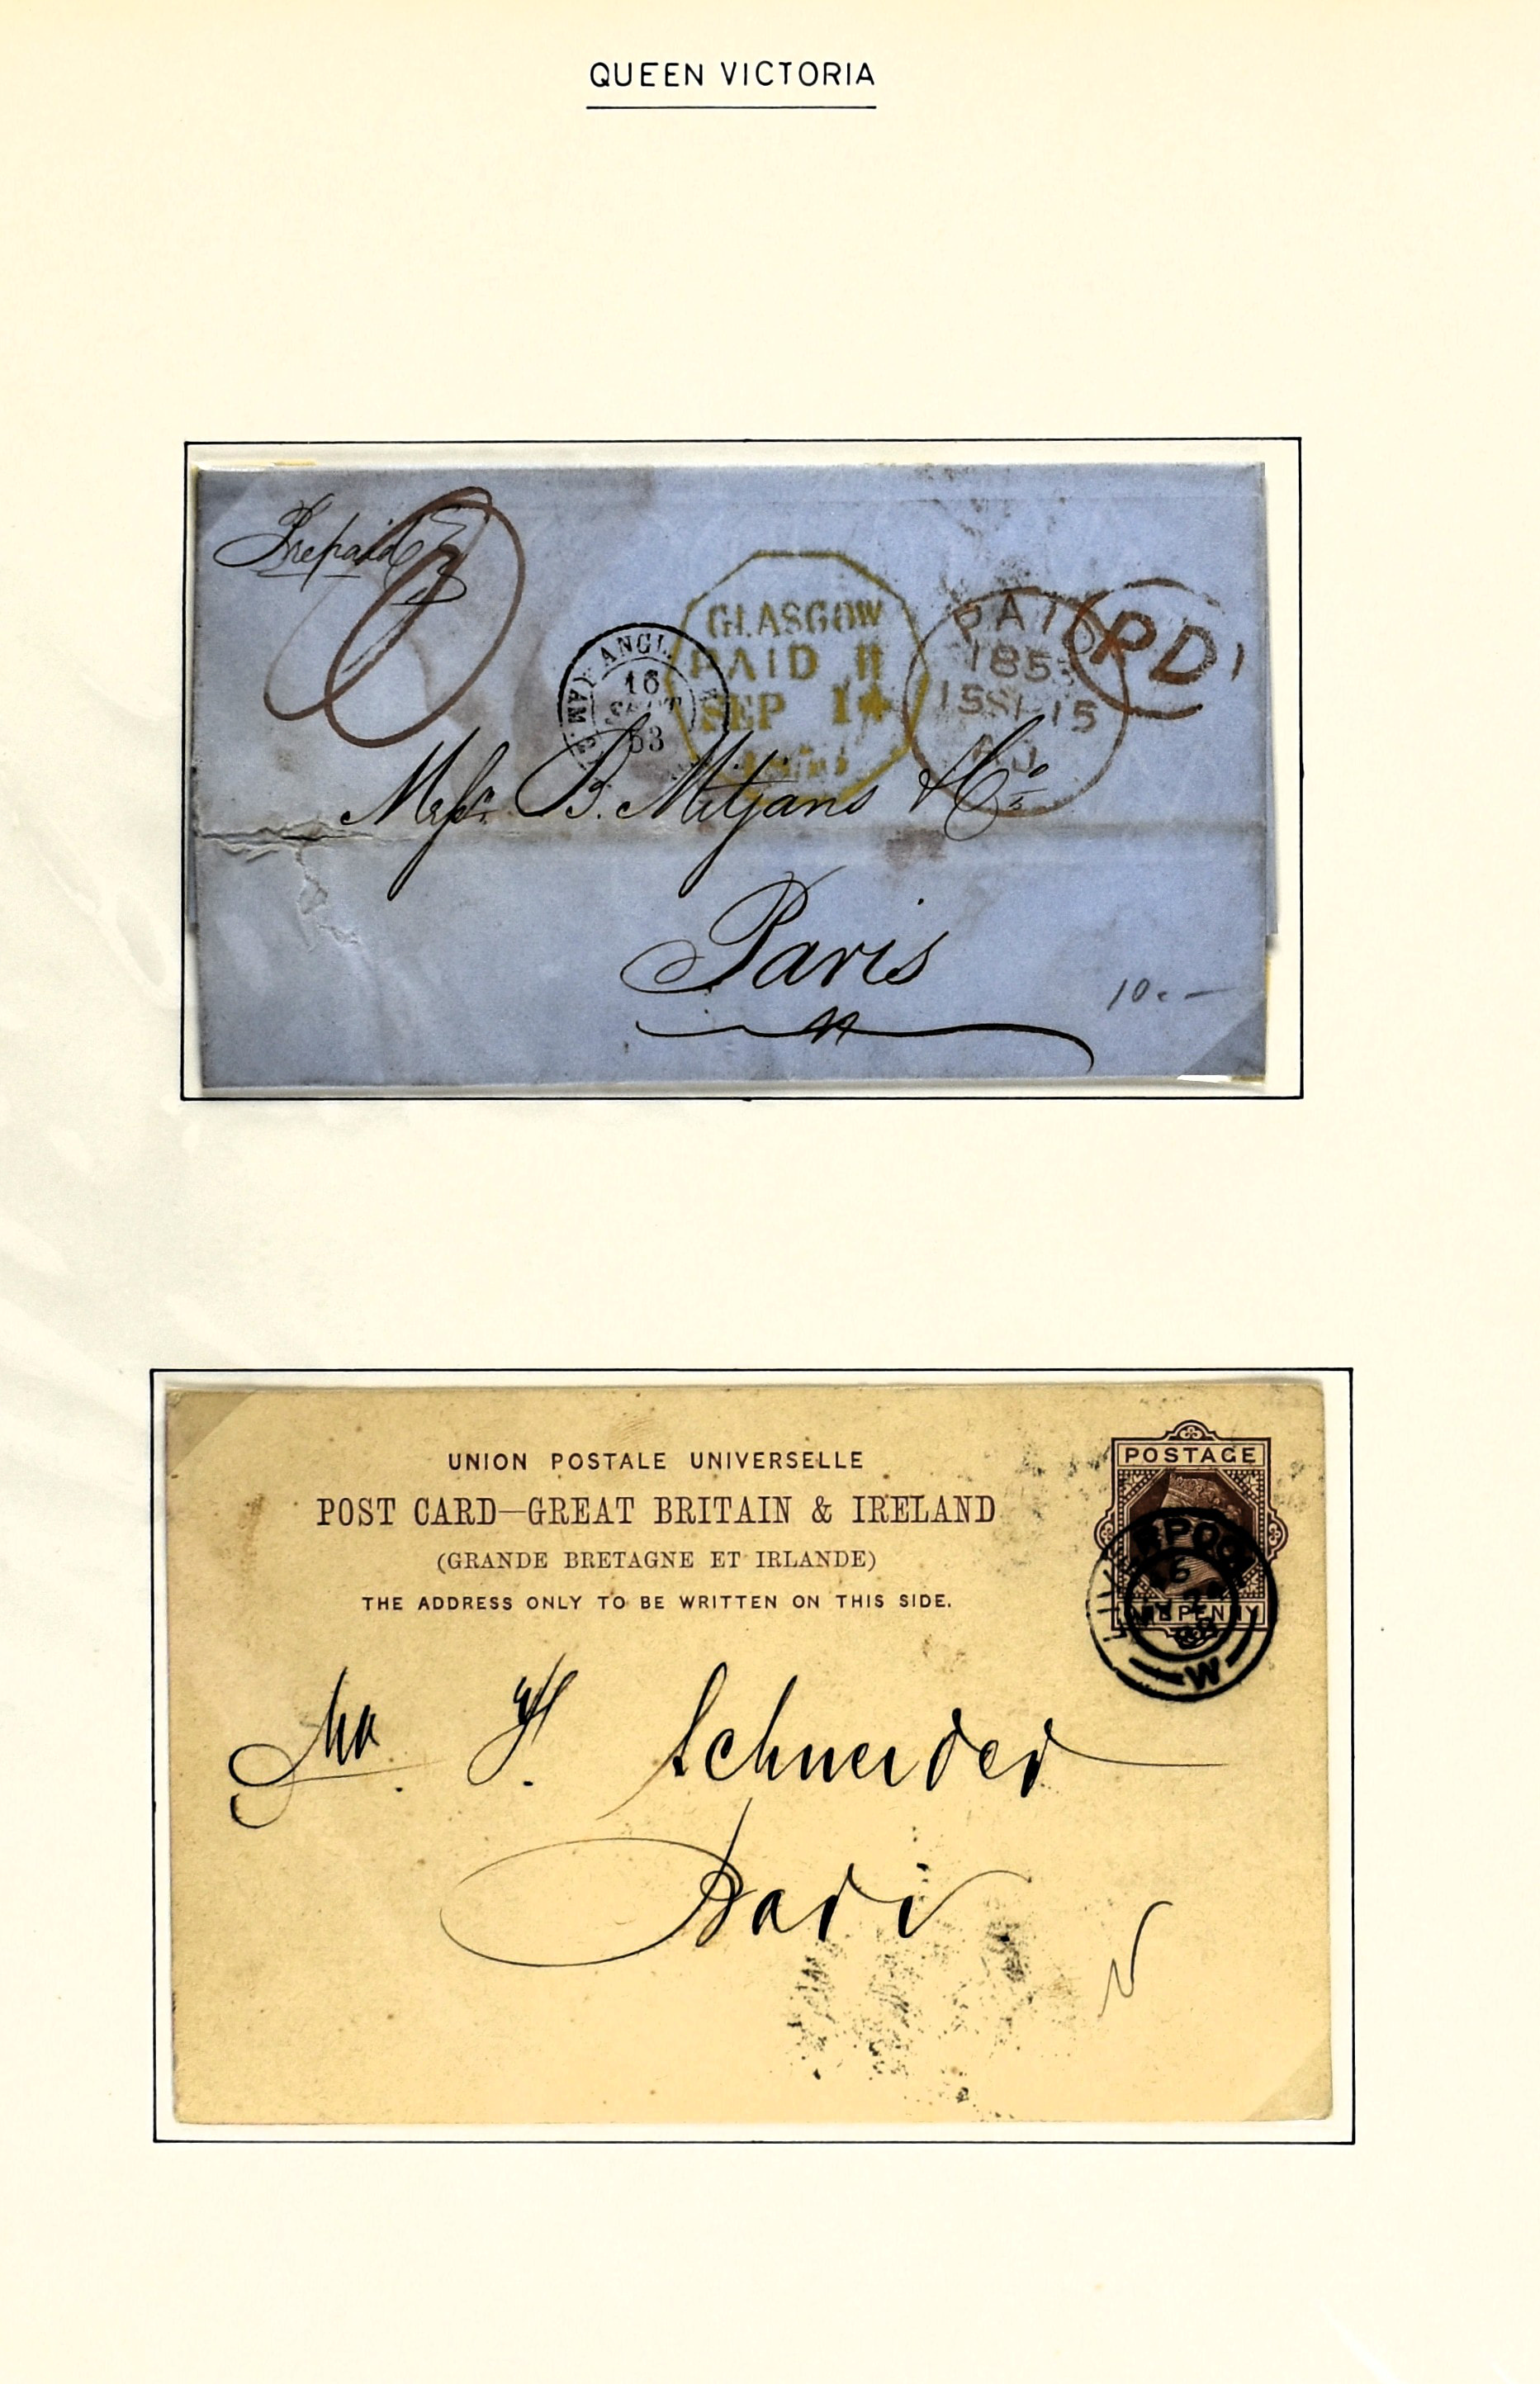 QUEEN VICTORIA
Prepaid
GLASGOW
PAID 11
SEP 14
ANGL.
16
SEPT
53
PAID
185
15SP15
PD
Messrs. B. Mitjans & Co
Paris
10.-
UNION POSTALE UNIVERSELLE
POST CARD—GREAT BRITAIN & IRELAND
(GRANDE BRETAGNE ET IRLANDE)
THE ADDRESS ONLY TO BE WRITTEN ON THIS SIDE.
POSTAGE
ONE PENNY
LIVERPOOL
88
W
Schneider
Paris